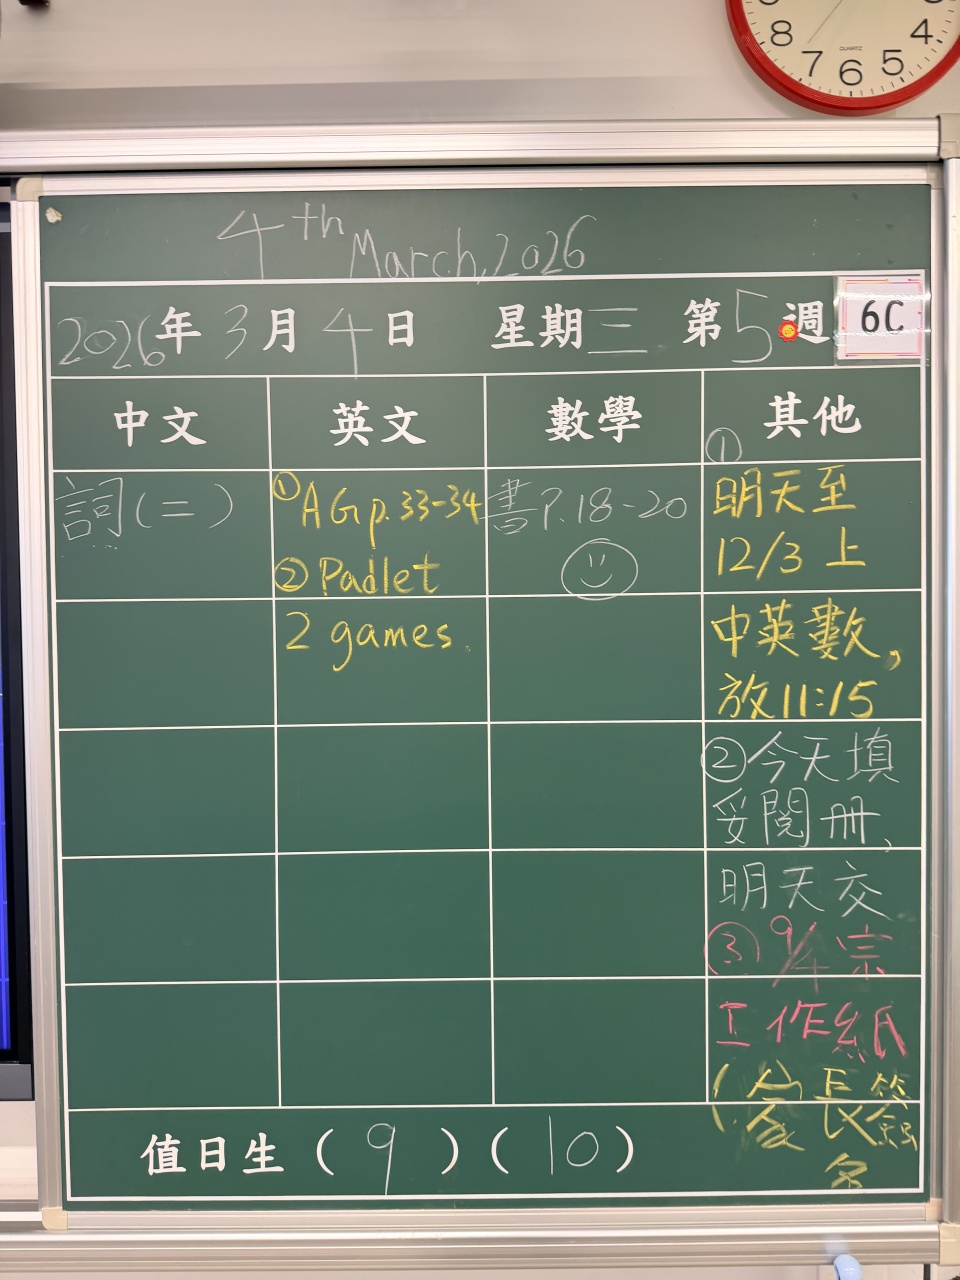 8 7 6 5 4
QUARTZ
4th March, 2026
2026年3月4日 星期三 第5週 6C
中文 英文 數學 其他
詞(二)
①AG p.33-34
②Padlet
2 games.
書P.18-20
①
明天至
12/3上
中英數,
放11:15
②今天填
妥閱冊,
明天交
③9/4宗
工作紙
(家長簽
名
值日生(9)(10)